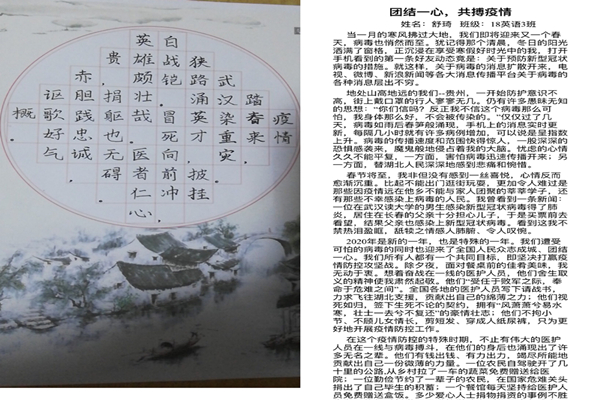 疫情
踏春来
武汉染重灾，
狭路涌英才，披挂
自战铠，冒死向前冲，
英雄颇壮哉。医者仁心
贵，捐躯也无碍，
赤胆践忠诚，
讴歌好气
概。
团结一心，共搏疫情
姓名：舒琦 班级：18英语3班
当一月的寒风拂过大地，我们即将迎来又一个春
天，病毒也悄然而至。犹记得那个清晨，冬日的阳光
洒满了窗格，正沉浸在享受寒假好时光中的我，打开
手机看到的第一条好友动态竟是：关于预防新型冠状
病毒的措施。就这样，关于病毒的消息扩散开来，电
视、微博、新浪新闻等各大消息传播平台关于病毒的
各种消息层出不穷。
地处山高地远的我们--贵州，一开始防护意识不
高，街上戴口罩的行人寥寥无几，仍有许多愚昧无知
的思想：“你们信吗？反正我不信这个病毒那么可
怕，我身体那么好，不会被传染的。”仅仅过了几
天，病毒如雨后春笋般涌现，手机上的消息实时更
新，每隔几小时就有许多病例增加，可以说是呈指数
上升。病毒的传播速度和范围快得惊人，一股深深的
恐惧感袭来，魔鬼般地侵占着我的大脑。忧虑的心情
久久不能平复，一方面，害怕病毒迅速传播开来；另
一方面，替湖北人民深深地感到悲痛和惋惜。
春节将至，我非但没有感到一丝喜悦，心情反而
愈渐沉重。比起不能出门逛街玩耍，更加令人难过是
那些因疫情远在他乡不能与家人团聚的莘莘学子，还
有那些不幸感染上病毒的人民。我曾看到一条新闻：
一位在武汉读大学的男生感染新型冠状病毒得了肺
炎，居住在长春的父亲十分担心儿子，于是买票前去
看望，结果父亲也感染上新型冠状病毒。看到这我不
禁热泪盈眶，舐犊之情感人肺腑、令人叹惋。
2020年是新的一年，也是特殊的一年。我们遭受
可怕的病毒的同时也迎来了全国人民众志成城、团结
一心。我们所有人都有一个共同目标，即坚决打赢疫
情防控攻坚战。除夕夜，面对餐桌前的佳肴美味，我
无动于衷。想着奋战在一线的医护人员，他们舍生取
义的精神使我肃然起敬。他们“受任于败军之际，奉
命于危难之间”。全国各地的医护人员写下请战书，
力求飞往湖北支援，贡献出自己的绵薄之力；他们视
死如归，签下生死不论的契约，拥有“风萧萧兮易水
寒，壮士一去兮不复还”的豪情壮志；他们不拘小
节、不顾儿女情长，剪短发、穿成人纸尿裤，只为更
好地开展疫情防控工作。
在这个疫情防控的特殊时期，不止有伟大的医护
人员在一线与病毒搏斗，在他们的身后也涌现出了许
多无名之辈。他们有钱出钱、有力出力，竭尽所能地
贡献出自己一份微薄的力量。一位农民自驾驶开了几
十里的公路,从乡村拉了一车的蔬菜免费赠送给医
院；一位勤俭节约了一辈子的农民，在国家危难关头
捐出了自己毕生的积蓄；一个餐馆每天坚持给医护人
员免费赠送盒饭。多少爱心人士捐物捐资的事例不胜